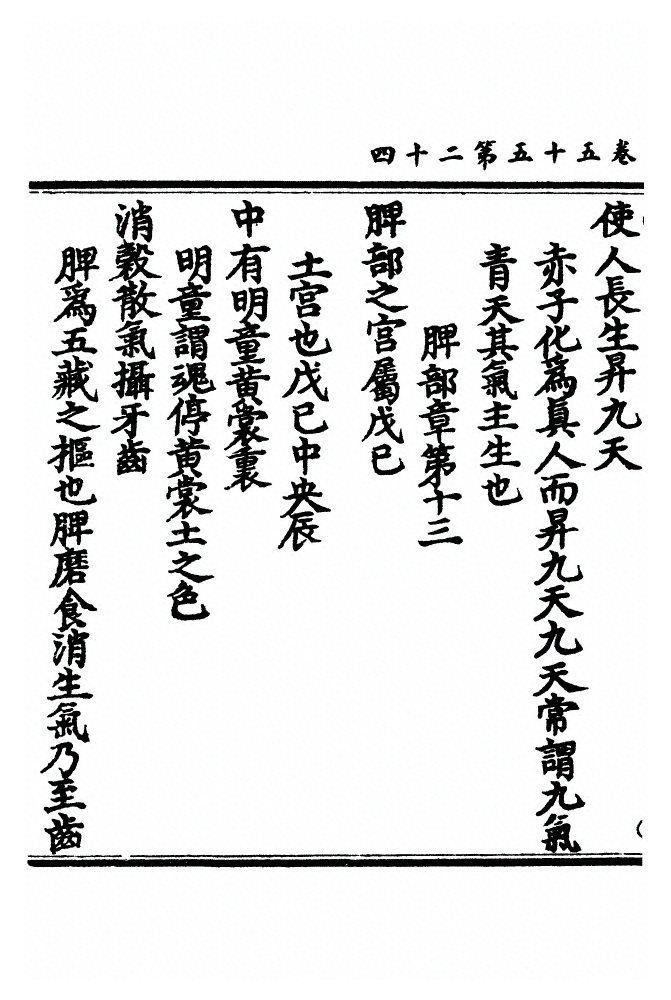 卷五十五第二十四
使人長生昇九天
赤子化為眞人而昇九天九天常謂九氣
青天其氣主生也
脾部章第十三
脾部之宮屬戊巳
土宮也戊巳中央辰
中有明童黄裳裏
明童謂魂停黄裳土之色
消穀散氣攝牙齒
脾爲五藏之摳也脾磨食消生氣乃至齒